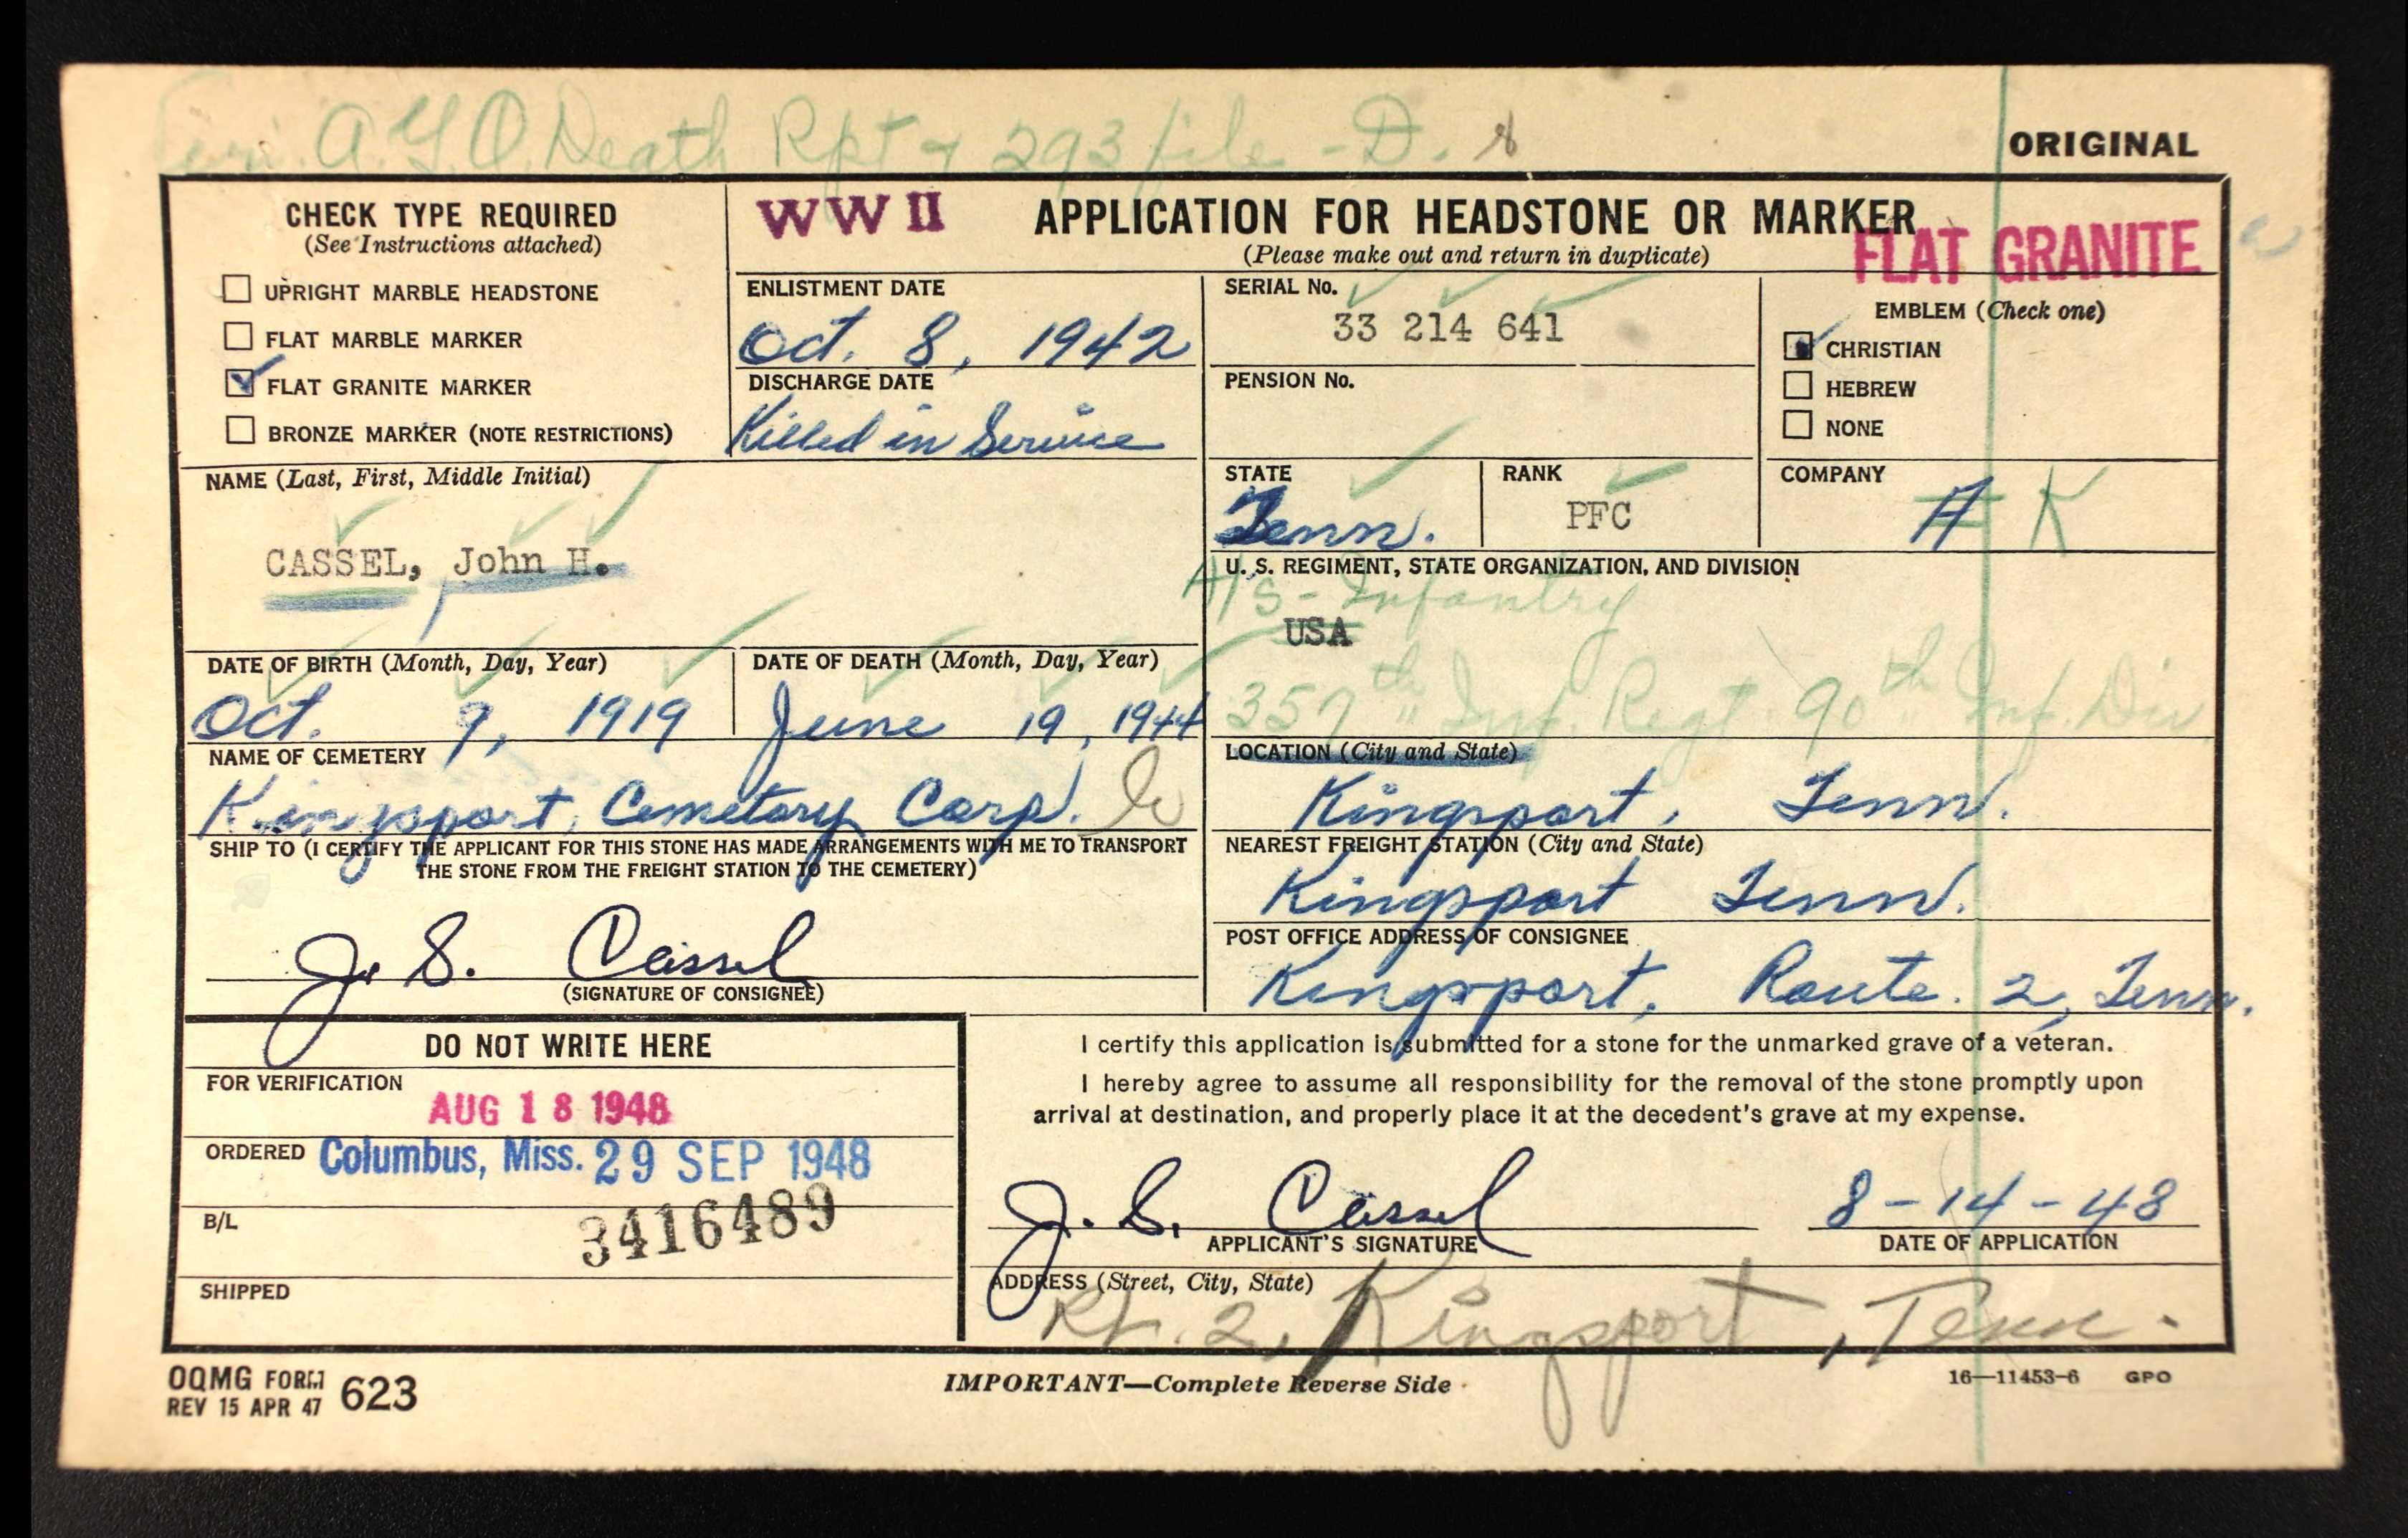 A.G.O. Death Rpt + 293 file - D.
ORIGINAL
CHECK TYPE REQUIRED
(See Instructions attached)
UPRIGHT MARBLE HEADSTONE
FLAT MARBLE MARKER
FLAT GRANITE MARKER
BRONZE MARKER (NOTE RESTRICTIONS)
WW II
APPLICATION FOR HEADSTONE OR MARKER
(Please make out and return in duplicate)
FLAT GRANITE
ENLISTMENT DATE
Oct. 8, 1942
DISCHARGE DATE
Killed in Service
SERIAL No.
33 214 641
PENSION No.
EMBLEM (Check one)
CHRISTIAN
HEBREW
NONE
NAME (Last, First, Middle Initial)
CASSEL, John H.
STATE
Tenn.
RANK
PFC
COMPANY
A K
U. S. REGIMENT, STATE ORGANIZATION, AND DIVISION
H/S - Infantry
USA
357th Inf. Regt 90th Inf. Div
DATE OF BIRTH (Month, Day, Year)
Oct. 9, 1919
DATE OF DEATH (Month, Day, Year)
June 19, 1944
NAME OF CEMETERY
Kingsport, Cemetary Corp.
LOCATION (City and State)
Kingsport, Tenn.
SHIP TO (I CERTIFY THE APPLICANT FOR THIS STONE HAS MADE ARRANGEMENTS WITH ME TO TRANSPORT
THE STONE FROM THE FREIGHT STATION TO THE CEMETERY)
J. S. Cassel
(SIGNATURE OF CONSIGNEE)
NEAREST FREIGHT STATION (City and State)
Kingsport Tenn.
POST OFFICE ADDRESS OF CONSIGNEE
Kingsport, Route. 2, Tenn.
DO NOT WRITE HERE
FOR VERIFICATION
AUG 18 1948
ORDERED Columbus, Miss. 29 SEP 1948
B/L
3416489
SHIPPED
I certify this application is submitted for a stone for the unmarked grave of a veteran.
I hereby agree to assume all responsibility for the removal of the stone promptly upon
arrival at destination, and properly place it at the decedent's grave at my expense.
J. S. Cassel
APPLICANT'S SIGNATURE
8-14-48
DATE OF APPLICATION
ADDRESS (Street, City, State)
Rt. 2, Kingsport, Tenn.
OQMG FORM 623
REV 15 APR 47
IMPORTANT—Complete Reverse Side
16—11453-6 GPO